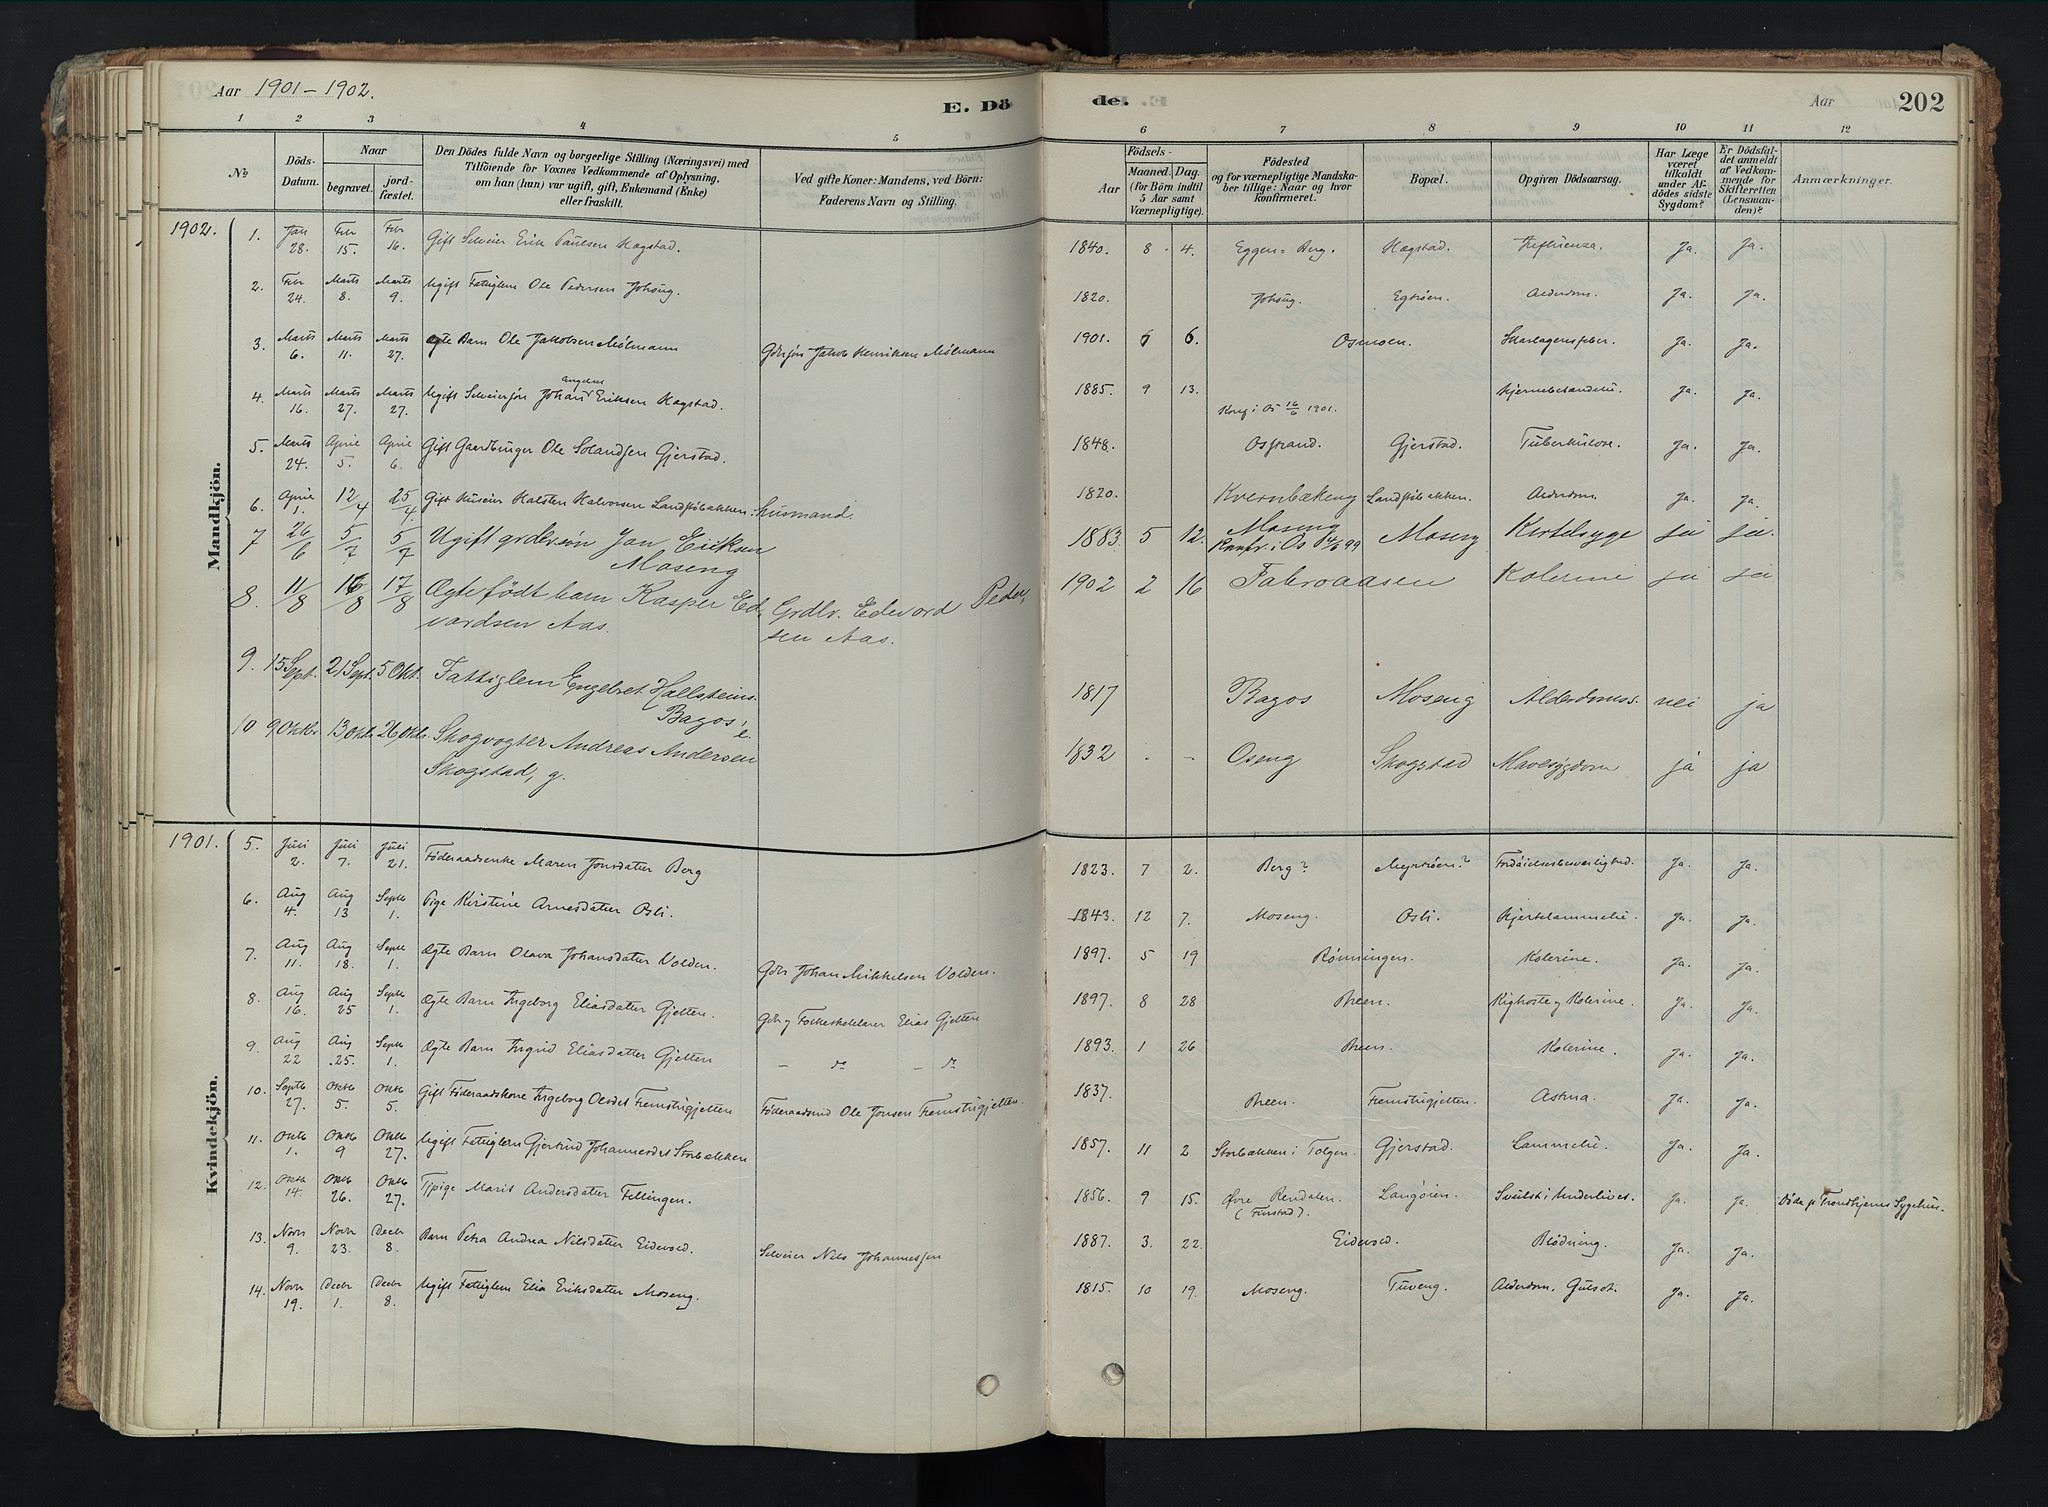 Aar 1901–1902.
E. Dö
de.
Aar
202
1 2 3 4 5 6 7 8 9 10 11 12
No
Döds-
Datum.
Naar
begravet.
jord-
fæstet.
Den Dödes fulde Navn og borgerlige Stilling (Næringsvei) med
Tilföiende for Voxnes Vedkommende af Oplysning,
om han (hun) var ugift, gift, Enkemand (Enke)
eller fraskilt.
Ved gifte Koner: Mandens, ved Börn:
Faderens Navn og Stilling.
Födsels-
Aar
Maaned. Dag.
(for Börn indtil
5 Aar samt
Værnepligtige).
Födested
og for værnepligtige Mandska-
ber tillige: Naar og hvor
konfirmeret.
Bopæl.
Opgiven Dödsaarsag.
Har Læge
været
tilkaldt
under Af-
dödes sidste
Sygdom?
Er Dödsfal-
det anmeldt
af Vedkom-
mende for
Skifteretten
(Lensman-
den)?
Anmærkninger.
Mandkjön.
1902.
1. Jan 28. Febr 15. Febr 16. Gift Selveier Erik Paulsen Hagstad. 1840. 8 4. Eggen = Berg. Hagstad. Influenza. Ja. Ja.
2. Febr 24. Marts 8. Marts 9. Ugift Fattiglem Ole Pedersen Johsug. 1820. Johsug. Egtrøen. Alderdom. Ja. Ja.
3. Marts 6. Marts 11. Marts 27. Ægte Barn Ole Jakobsen Mølmann Jakob Henriksen Mølmann 1901. 6 6. Osmoen. Skarlagensfeber. Ja. Ja.
4. Marts 16. Marts 27. Marts 27. Ugift Selveiersøn Johan Angelus Eriksen Hagstad. 1885. 9 13. Konf i Os 16/6 1901. Hjernebetændelse. Ja. Ja.
5. Marts 24. April 5. April 6. Gift Gaardbruger Ole Gjerstad. 1848. Osstrand. Gjerstad. Tuberkulose. Ja. Ja.
6. April 1. 12/4 25/4. Gift Huseier Halsten Halvorsen Landstøbakken. husmand. 1820. Kvernbækeng Landstøbakken. Alderdom. Ja. Ja.
7 26/6 5/7 5/7 Ugift grdersøn Jon Eriksen Moseng 1883. 5 12. Moseng Konfr. i Os 99 Moseng Kirtelsyge ja ja.
8. 11/8 16/8 17/8 Ægtefödt barn Kasper Ed-
vardsen Aas. Grdbr. Edvard Peder-
sen Aas. 1902 2 16 Kolerine ja ja
9. 15 Sept. 21 Sept. 5 Okt. Fattiglem Engebret Hallsteins.
Bagos, e. 1817 Bagos Moseng Alderdomss. nei ja
10 9 Oktbr. 13 Oktb. 26 Oktbr. Skogvogter Andreas Andersen
Skogstad, g. 1832 - - Oseng Skogstad Mavesygdom ja ja
Kvindekjön.
1901.
5. Juli 2. Juli 7. Juli 21. Føderaadsenke Maren Jonsdatter Berg 1823. 7 2. Berg? Myrtrøen? Fordöielsesbesværlighed. Ja. Ja.
6. Aug 4. Aug 13 Septb 1. Pige Kirstine Arnesdatter Osli. 1843. 12 7. Moseng. Osli. Hjertelammelse. Ja. Ja.
7. Aug 11. Aug 18. Septb 1. Ægte Barn Olava Johansdatter Volden. Gdbr Johan Mikkelsen Volden. 1897. 5 19 Rønningen. Kolerine. Ja. Ja.
8. Aug 16. Aug 25 Septb 1. Ægte Barn Ingeborg Eliasdatter Gjelten. Gdbr og Folkeskolelærer Elias Gjelten 1897. 8 28 Breen. Kighoste og Kolerine. Ja. Ja.
9. Aug 22 Aug 25. Septb 1. Ægte Barn Ingrid Eliasdatter Gjelten – do – do 1893. 1 26 Breen. Kolerine. Ja. Ja.
10. Septb 27. Oktb 5. Oktb 5. Gift Føderaadskone Ingeborg Olsdtr Fremstugjelten Føderaadsmd Ole Jonsen Fremstugjelten. 1837. Breen. Fremstugjelten. Astma. Ja. Ja.
11. Oktb 1. Oktb 9 Oktb 27. Ugift Fattiglem Gjertrud Johannesdtr Storbækken 1857. 11 2 Storbækken i Tolgen. Gjerstad. Lammelse. Ja. Ja.
12. Oktb 14. Oktb 26. Oktb 27. Tjpige Marit Andersdatter Fellingen. 1856. 9 15. Øvre Rendalen. (Finstad). Langøien. Svulst i Underlivet. Ja. Ja. Døde på Trondhjems Sygehus.
13. Novbr 9. Novbr 23. Decbr 8. Barn Petra Andrea Nilsdatter Eidersvd. Selveier Nils Johannessen 1887. 3. 22. Blødning. Ja. Ja.
14. Novbr 19. Decbr 1. Decbr 8. Ugift Fattiglem Elia Eriksdatter Moseng. 1815. 10 19. Moseng. Tuveng. Alderdom, Gulsot. Ja. Ja.